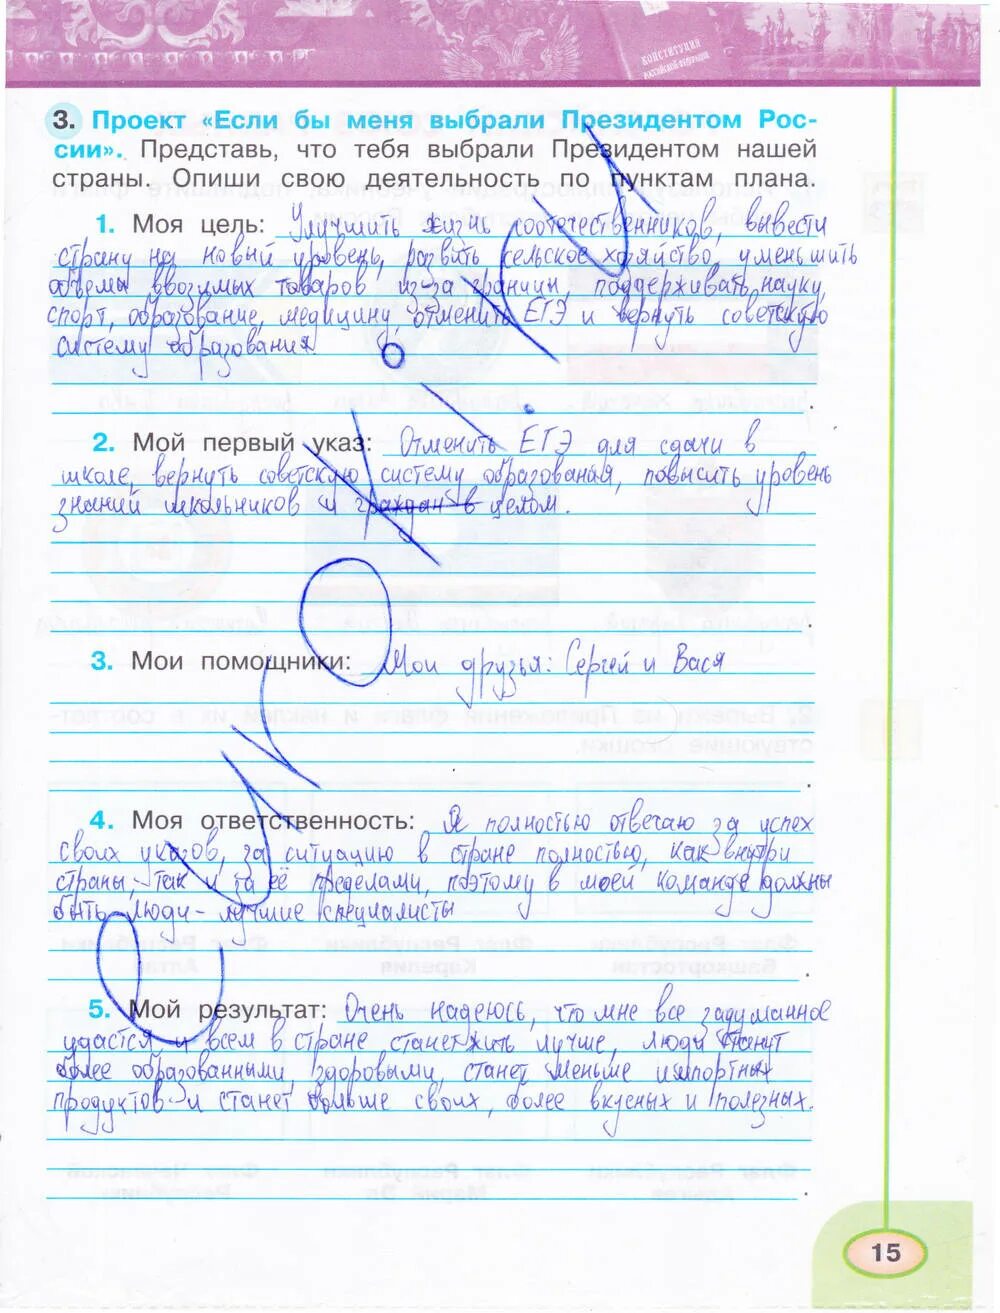 КОНСТИТУЦИЯ
РОССИЙСКОЙ ФЕДЕРАЦИИ
3. Проект «Если бы меня выбрали Президентом Рос-
сии». Представь, что тебя выбрали Президентом нашей
страны. Опиши свою деятельность по пунктам плана.
1. Моя цель: Улучшить жизнь соотечественников, вывести
страну на новый уровень, развить сельское хозяйство, уменьшить
объемы ввозимых товаров из-за границы, поддерживать науку,
спорт, образование, медицину, отменить ЕГЭ и вернуть советскую
систему образования.
2. Мой первый указ: Отменить ЕГЭ для сдачи в
школе, вернуть советскую систему образования, повысить уровень
знаний школьников и граждан в целом.
3. Мои помощники: Мои друзья: Сергей и Вася
4. Моя ответственность: Я полностью отвечаю за успех
своих указов, за ситуацию в стране полностью, как внутри
страны, так и за её пределами, поэтому в моей команде должны
быть люди - лучшие специалисты
5. Мой результат: Очень надеюсь, что мне все задуманное
удастся и всем в стране станет жить лучше, люди станут
более образованными, здоровыми, станет меньше импортных
продуктов и станет больше своих, более вкусных и полезных.
еуроки.ru
15